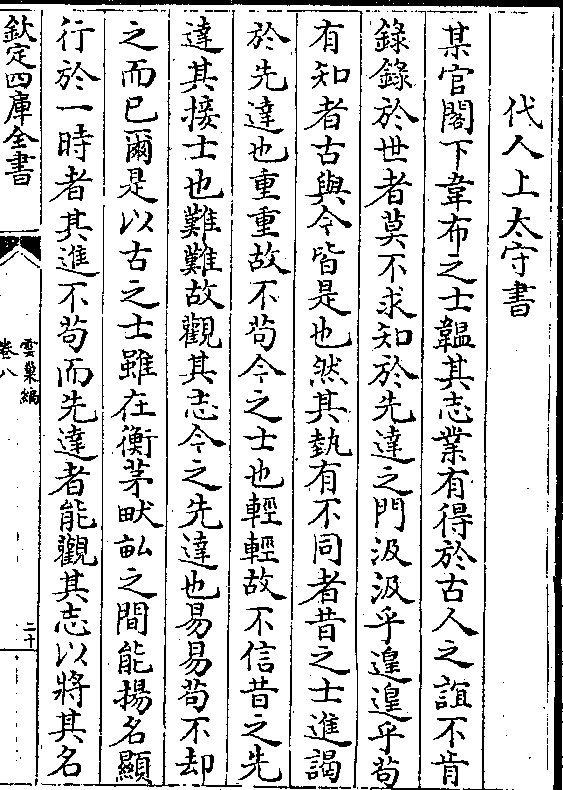 代人上太守書
某官閣下韋布之士韞其志業有得於古人之誼不肯
錄錄於世者莫不求知於先達之門汲汲乎遑遑乎茍
有知者古與今皆是也然其埶有不同者昔之士進謁
於先達也重重故不茍今之士也輕輕故不信昔之先
達其接士也難難故觀其志今之先達也易易茍不却
之而已爾是以古之士雖在衡茅畎畝之間能揚名顯
行於一時者其進不茍而先達者能觀其志以將其名
欽定四庫全書
雲巢編
卷八
二十